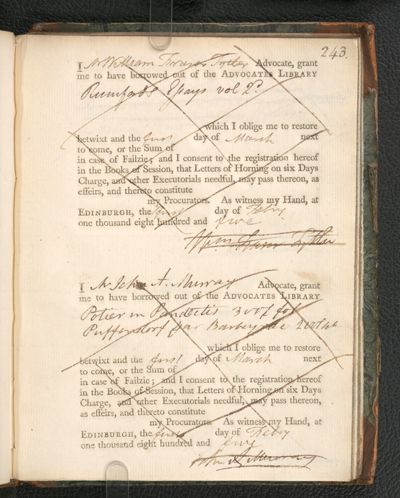 243
I Mr William Fraser Tytler Advocate, grant
me to have borrowed out of the ADVOCATES LIBRARY
Rumford's Essays vol 2d
which I oblige me to restore
betwixt and the first day of March next
to come, or the Sum of
in case of Failzie; and I consent to the registration hereof
in the Books of Session, that Letters of Horning on six Days
Charge, and other Executorials needful, may pass thereon, as
effeirs, and thereto constitute
my Procurators. As witness my Hand, at
EDINBURGH, the first day of Febry
one thousand eight hundred and five
Wm Fraser Tytler
I Mr John A. Murray Advocate, grant
me to have borrowed out of the ADVOCATES LIBRARY
Potier in Pandectis 3 vols fol
Puffendorf par Barbeyrac 2 vols 4to
which I oblige me to restore
betwixt and the first day of March next
to come, or the Sum of
in case of Failzie; and I consent to the registration hereof
in the Books of Session, that Letters of Horning on six Days
Charge, and other Executorials needful, may pass thereon,
as effeirs, and thereto constitute
my Procurators. As witness my Hand, at
EDINBURGH, the first day of Febry
one thousand eight hundred and five
John A Murray